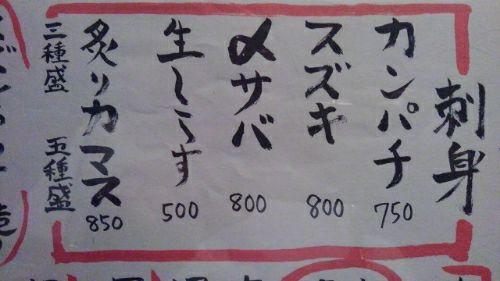 刺身
カンパチ 750
スズキ 800
〆サバ 800
生しらす 500
炙りカマス 850
三種盛 五種盛